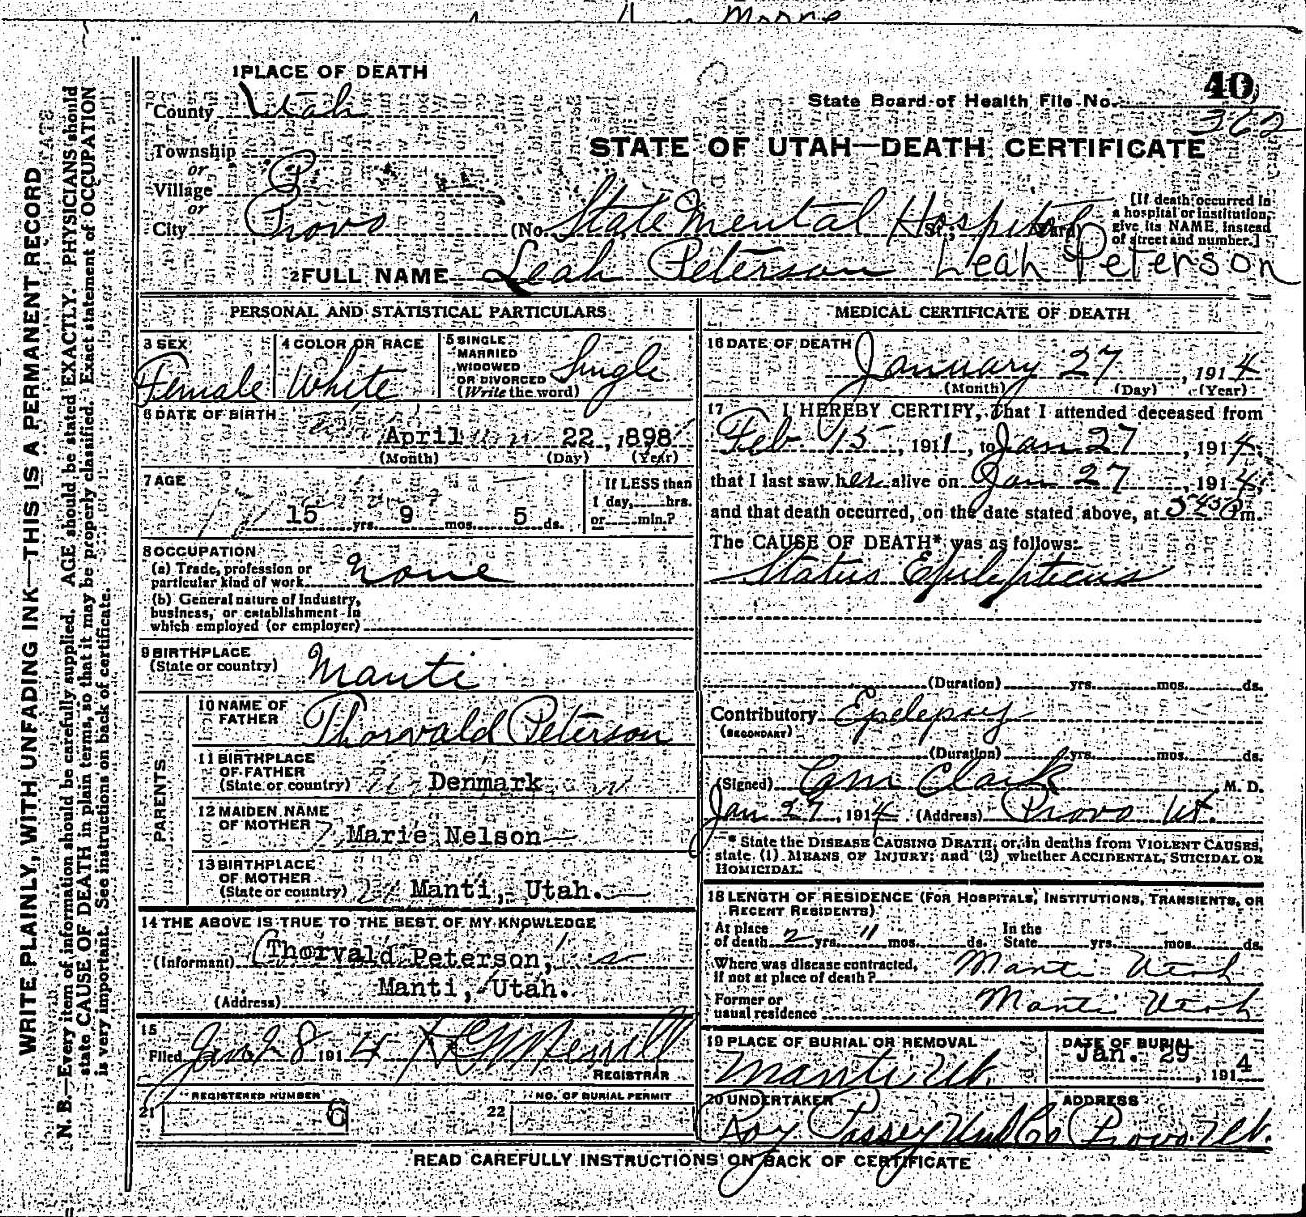 Moore
1 PLACE OF DEATH
40
County Utah
State Board of Health File No.
362
Township
STATE OF UTAH—DEATH CERTIFICATE
or
Village
or
City Provo (No. State Mental Hospital St.; Ward)
[If death occurred in
a hospital or institution,
give its NAME, instead
of street and number.]
2 FULL NAME Leah Peterson Leah Peterson
PERSONAL AND STATISTICAL PARTICULARS
3 SEX
Female
4 COLOR OR RACE
White
5 SINGLE
MARRIED
WIDOWED
OR DIVORCED
(Write the word)
Single
6 DATE OF BIRTH
April 22, 1898
(Month) (Day) (Year)
7 AGE
15 yrs. 9 mos. 5 ds.
If LESS than
1 day, hrs.
or min.?
8 OCCUPATION
(a) Trade, profession or
particular kind of work None
(b) General nature of industry,
business, or establishment in
which employed (or employer)
9 BIRTHPLACE
(State or country) Manti
PARENTS
10 NAME OF
FATHER Thorvald Peterson
11 BIRTHPLACE
OF FATHER
(State or country) Denmark
12 MAIDEN NAME
OF MOTHER Marie Nelson
13 BIRTHPLACE
OF MOTHER
(State or country) Manti, Utah.
14 THE ABOVE IS TRUE TO THE BEST OF MY KNOWLEDGE
(Informant) Thorvald Peterson,
(Address) Manti, Utah.
15
Filed Jan 28 1914
REGISTRAR
REGISTERED NUMBER
21 6
NO. OF BURIAL PERMIT
22
MEDICAL CERTIFICATE OF DEATH
16 DATE OF DEATH
January 27, 1914
(Month) (Day) (Year)
17 I HEREBY CERTIFY, that I attended deceased from
Feb 15, 1911, to Jan 27, 1914,
that I last saw her alive on Jan 27, 1914,
and that death occurred, on the date stated above, at 5:45 P m.
The CAUSE OF DEATH* was as follows:
Status Epilepticus
(Duration) yrs. mos. ds.
Contributory Epilepsy
(SECONDARY)
(Duration) yrs. mos. ds.
(Signed) Clark M. D.
Jan 27, 1914 (Address) Provo Ut.
* State the DISEASE CAUSING DEATH, or, in deaths from VIOLENT CAUSES,
state (1) MEANS OF INJURY; and (2) whether ACCIDENTAL, SUICIDAL OR
HOMICIDAL.
18 LENGTH OF RESIDENCE (FOR HOSPITALS, INSTITUTIONS, TRANSIENTS, OR
RECENT RESIDENTS)
At place
of death 2 yrs. 11 mos. ds.
In the
State yrs. mos. ds.
Where was disease contracted,
if not at place of death? Manti Utah
Former or
usual residence Manti Utah
19 PLACE OF BURIAL OR REMOVAL
Manti Ut.
DATE OF BURIAL
Jan. 29, 1914
20 UNDERTAKER
Roy Passey Und Co
ADDRESS
Provo Ut.
READ CAREFULLY INSTRUCTIONS ON BACK OF CERTIFICATE
WRITE PLAINLY, WITH UNFADING INK—THIS IS A PERMANENT RECORD
N. B.—Every item of information should be carefully supplied. AGE should be stated EXACTLY. PHYSICIANS should
state CAUSE OF DEATH in plain terms, so that it may be properly classified. Exact statement of OCCUPATION
is very important. See instructions on back of certificate.